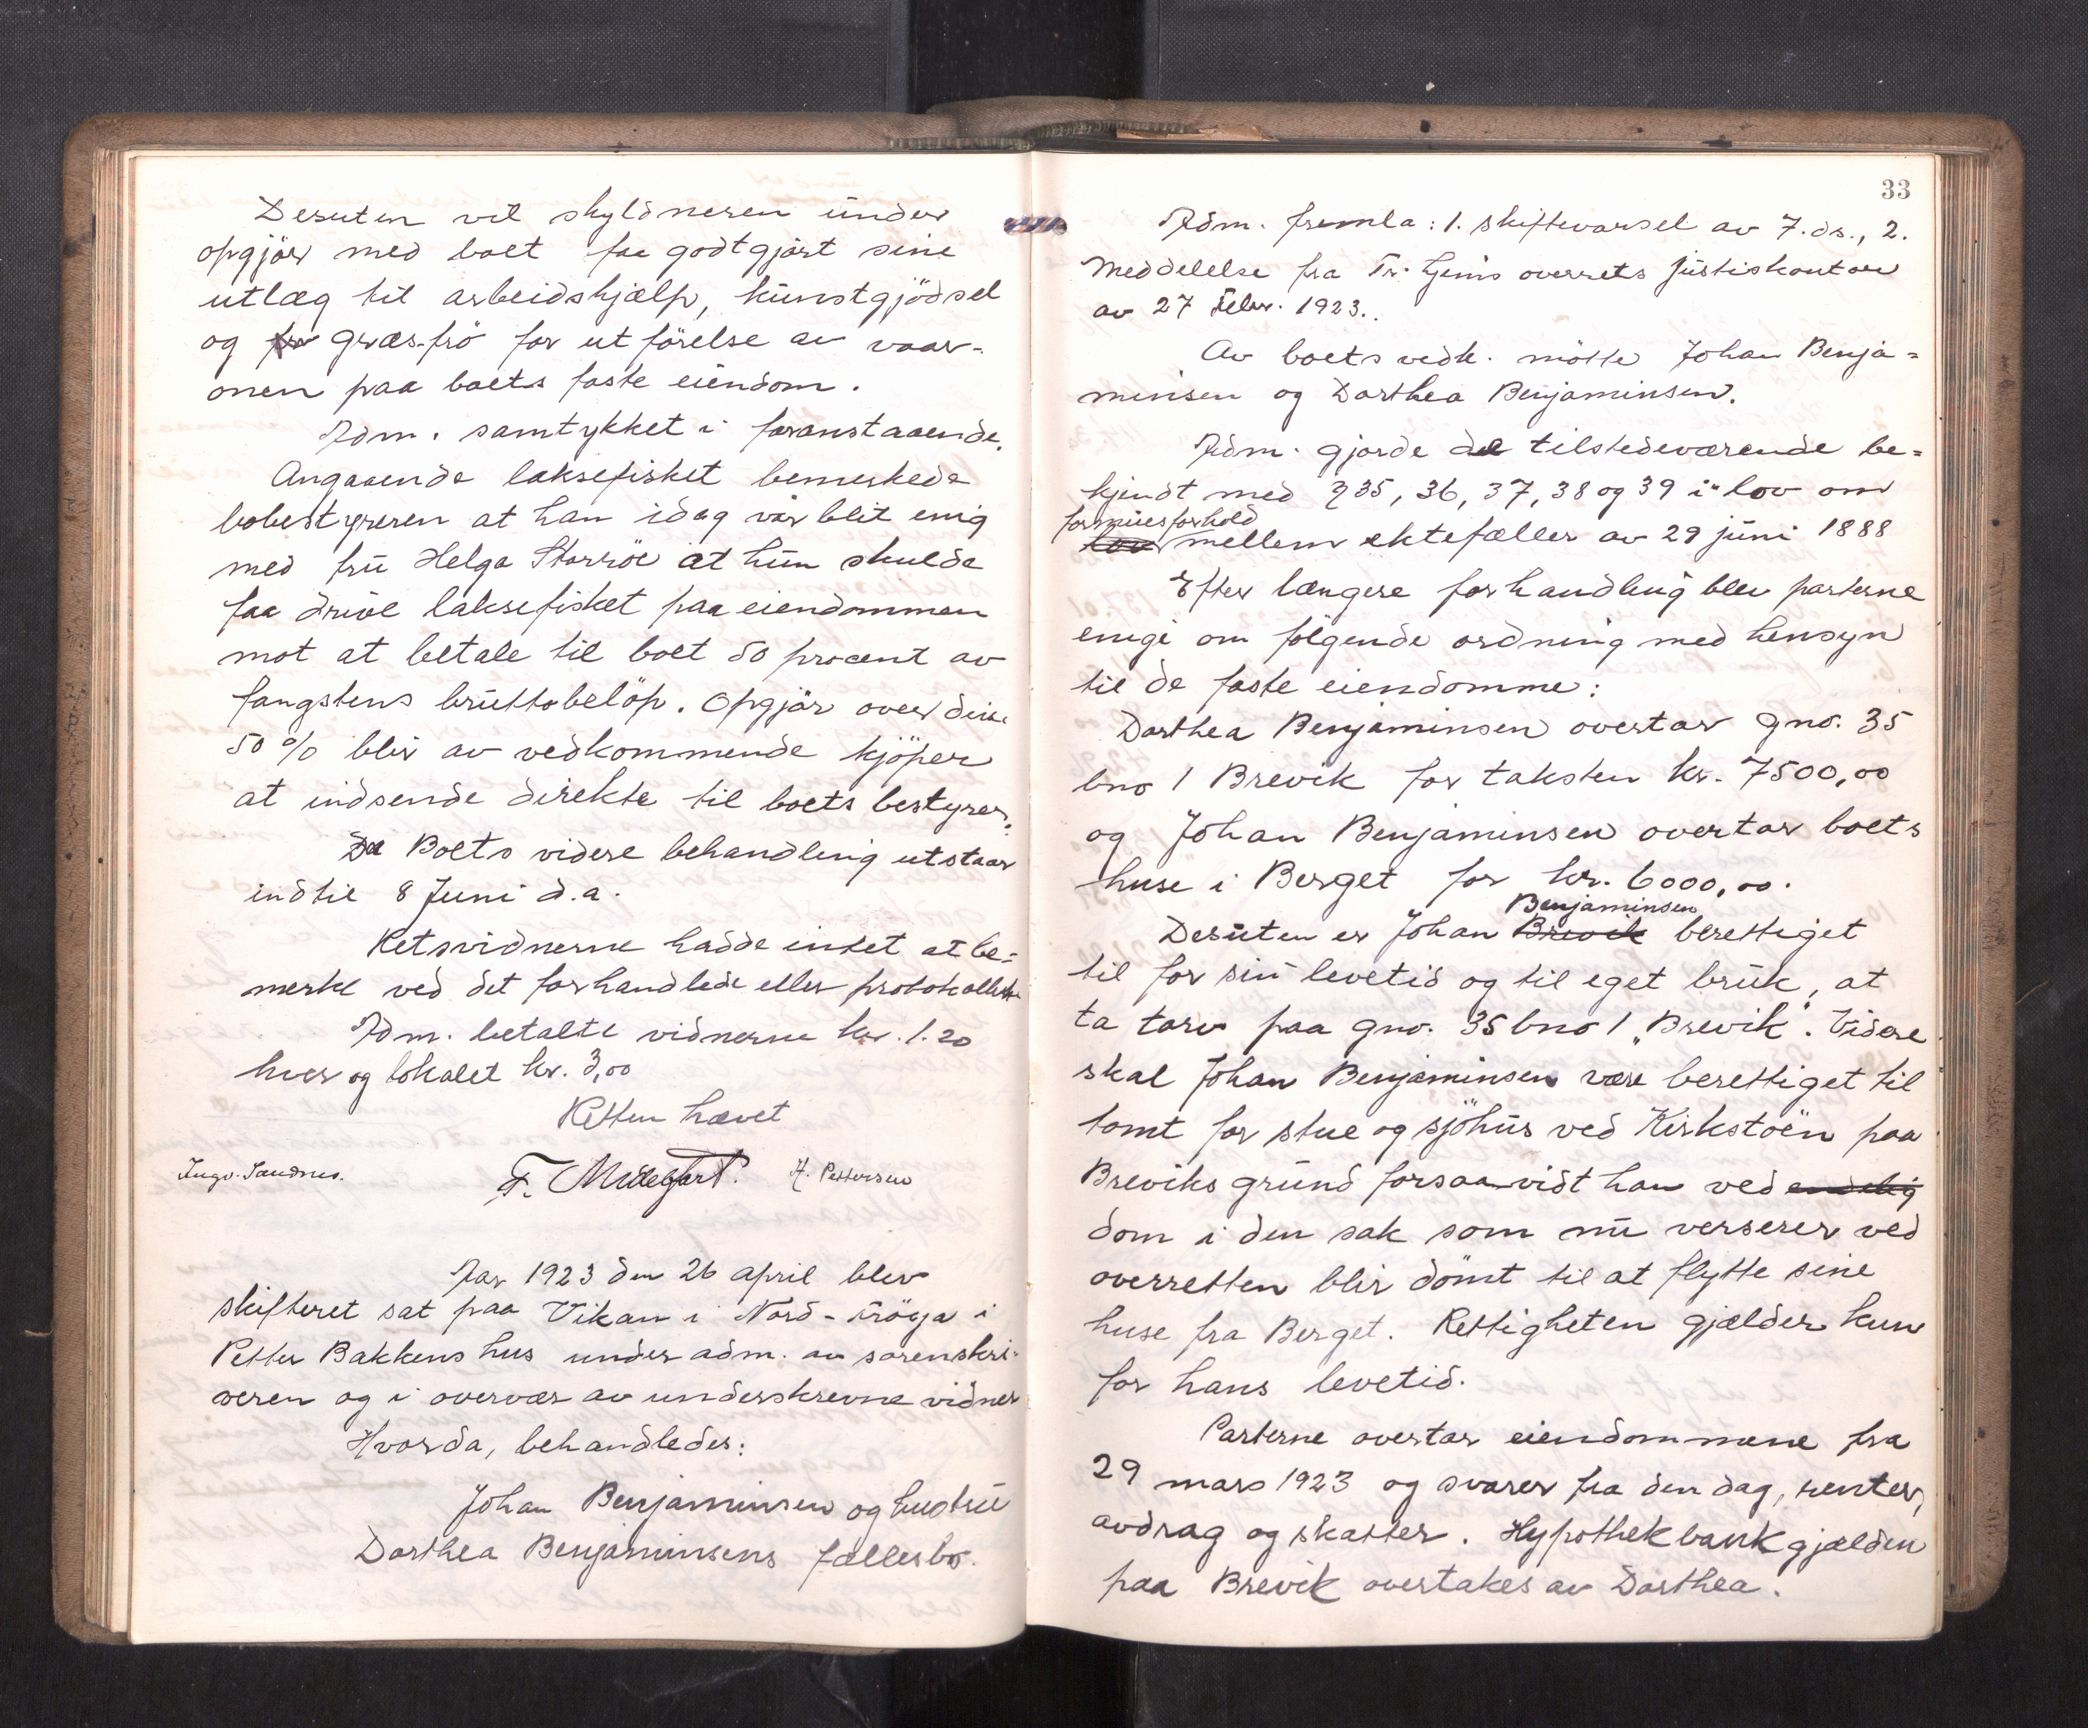 Desuten vil skyldneren under
opgjør med boet faa godtgjort sine
utlæg til arbeidshjælp, kunstgjödsel
og græs-frö for utförelse av vaar-
onen paa boets faste eiendom.
Adm. samtykket i foranstaaende.
Angaaende laksefisket bemerkede
bobestyreren at han idag var blit enig
med fru Helga Storröe at hun skulde
faa drive laksefisket paa eiendommen
mot at betale til boet 50 procent av
fangstens bruttobelöp. Opgjör over disse
50 % blir av vedkommende kjöper
at indsende direkte til boets bestyrer.
Boets videre behandling utstaar
indtil 8 Juni d.a.
Retsvidnerne hadde intet at be=
merke ved det forhandlede eller protokollerte
Adm. betalte vidnerne kr. 1.20
hver og lokalet kr. 3,00
Retten hævet
Ingv. Sandnes. F. Mideljart. H. Pettersen
Aar 1923 den 26 april blev
skifteret sat paa Vikan i Nord-Fröya i
Petter Bakkens hus under adm. av sorenskri-
veren og i overvær av underskrevne vidner
Hvorda, behandledes:
Johan Benjaminsen og hustru
Dorthea Benjaminsens fællesbo.
33
Adm. fremla: 1. skiftevarsel av 7. ds., 2.
Meddelelse fra Tr.hjems overrets justiskontor
av 27 Febr. 1923.
Av boets vedk. mötte Johan Benja=
minsen og Dorthea Benjaminsen.
Adm. gjorde de tilstedeværende be=
kjendt med § 35, 36, 37, 38 og 39 i lov om
formuesforhold
lov mellem ektefæller av 29 juni 1888
Efter længere forhandling blev parterne
enige om fölgende ordning med hensyn
til de faste eiendomme:
Dorthea Benjaminsen overtar gno. 35
bno 1 Brevik for taksten kr. 7500,00
og Johan Benjaminsen overtar boets
huse i Berget for kr. 6000,00.
Benjaminsen
Desuten er Johan Brevik berettiget
til for sin levetid og til eget bruk, at
ta torv paa gno. 35 bno 1 „Brevik“. Videre
skal Johan Benjaminsen være berettiget til
tomt for stue og sjöhus ved Kirkstöen paa
Breviks grund forsaavidt han ved endelig
dom i den sak som nu verserer ved
overretten blir dömt til at flytte sine
huse fra Berget. Rettigheten gjælder kun
for hans levetid.
Parterne overtar eiendommene fra
29 mars 1923 og svarer fra den dag, renter,
avdrag og skatter. Hypothekbankgjælden
paa Brevik overtakes av Dorthea.